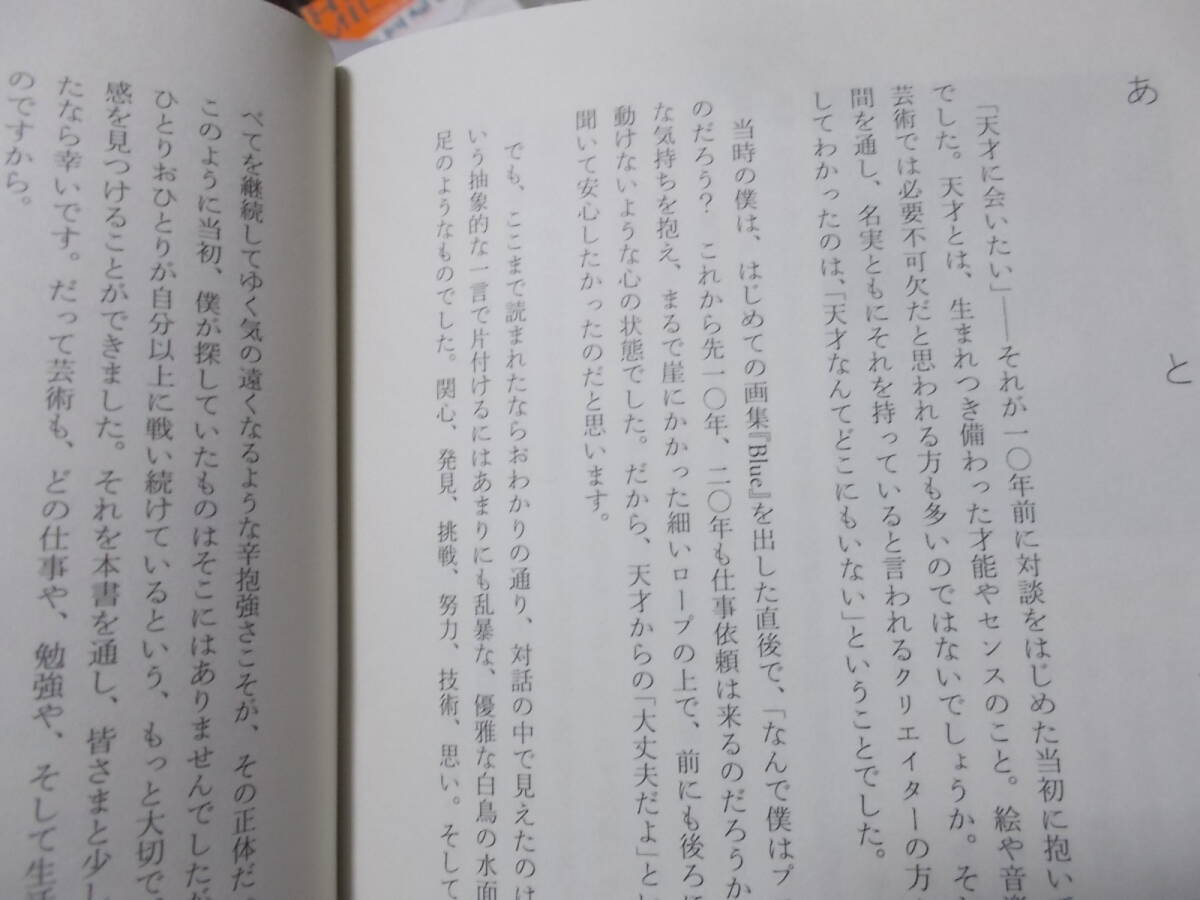 あと
「天才に会いたい」──それが一〇年前に対談をはじめた当初に抱いて
でした。天才とは、生まれつき備わった才能やセンスのこと。絵や音楽
芸術では必要不可欠だと思われる方も多いのではないでしょうか。そ
間を通し、名実ともにそれを持っていると言われるクリエイターの方
してわかったのは、「天才なんてどこにもいない」ということでした。
当時の僕は、はじめての画集『Blue』を出した直後で、「なんで僕はプ
のだろう? これから先一〇年、二〇年も仕事依頼は来るのだろうか
な気持ちを抱え、まるで崖にかかった細いロープの上で、前にも後ろに
動けないような心の状態でした。だから、天才からの「大丈夫だよ」と
聞いて安心したかったのだと思います。
でも、ここまで読まれたならおわかりの通り、対話の中で見えたのは
いう抽象的な一言で片付けるにはあまりにも乱暴な、優雅な白鳥の水面
足のようなものでした。関心、発見、挑戦、努力、技術、思い。そして
べてを継続してゆく気の遠くなるような辛抱強さこそが、その正体だ
このように当初、僕が探していたものはそこにはありませんでしたが
ひとりおひとりが自分以上に戦い続けているという、もっと大切で
感を見つけることができました。それを本書を通し、皆さまと少し
たなら幸いです。だって芸術も、どの仕事や、勉強や、そして生活
のですから。